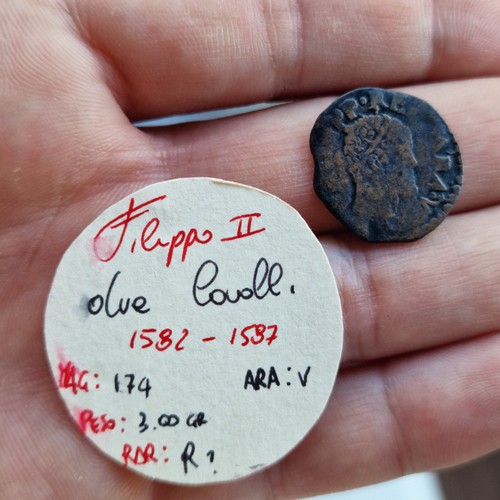 Filippo II
due Cavall.
1582 - 1587
MAG: 174 ARA: V
PESO: 3.00 GR
RAR: R?